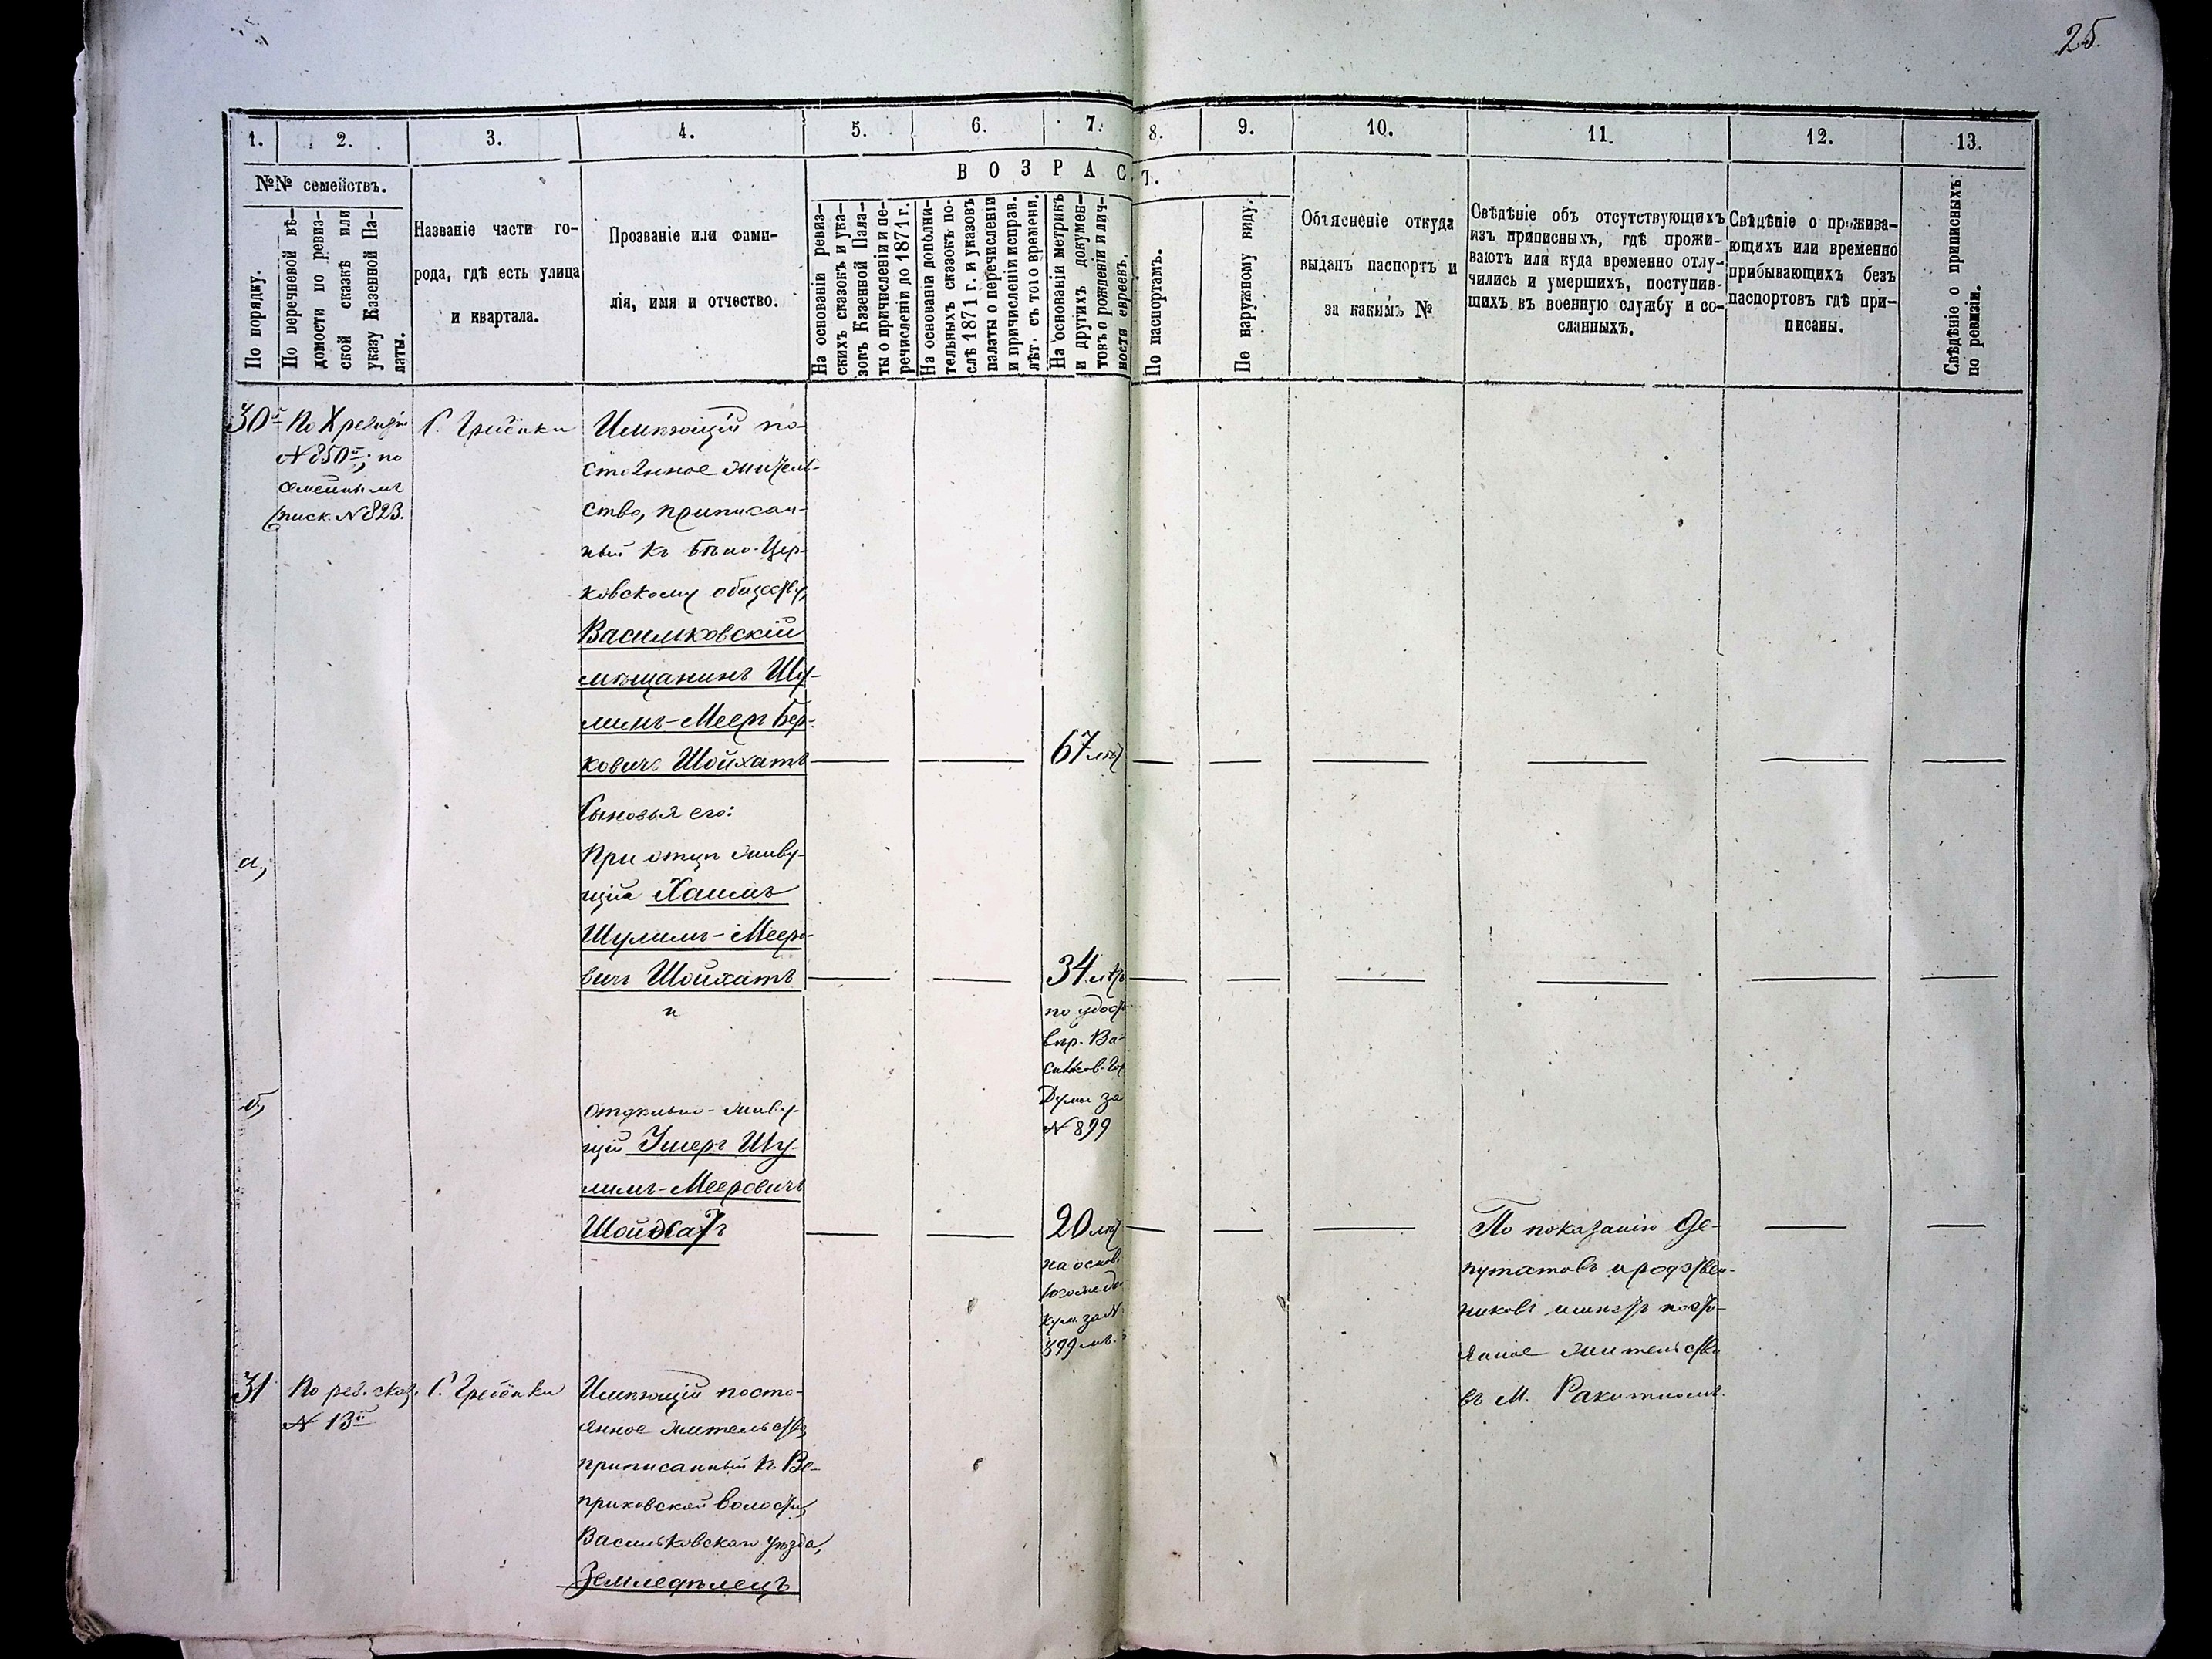 25.
1. 2. 3. 4. 5. 6. 7. 8. 9. 10. 11. 12. 13.
№№ семействъ.
По порядку.
По перечневой вѣ-
домости по ревиз-
ской сказкѣ или
указу Казенной Па-
латы.
Названіе части го-
рода, гдѣ есть улица
и квартала.
Прозваніе или фами-
лія, имя и отчество.
ВОЗРАСТ.
На основаніи ревиз-
скихъ сказокъ и ука-
зовъ Казенной Пала-
ты о причисленіи и пе-
речисленіи до 1871 г.
На основаніи дополни-
тельныхъ сказокъ по-
слѣ 1871 г. и указовъ
палаты о перечисленіи
и причисленіи исправ.
лѣт. съ того времени.
На основаніи метрикъ
и другихъ докумен-
товъ о рожденіи и лич-
ности евреевъ.
По паспортамъ.
По наружному виду.
Объясненіе откуда
выданъ паспортъ и
за какимъ №
Свѣдѣніе объ отсутствующихъ
изъ приписныхъ, гдѣ прожи-
ваютъ или куда временно отлу-
чились и умершихъ, поступив-
шихъ въ военную службу и со-
сланныхъ.
Свѣдѣніе о прожива-
ющихъ или временно
прибывающихъ безъ
паспортовъ гдѣ при-
писаны.
Свѣдѣніе о приписныхъ
по ревизіи.
30й
По X ревизіи
№ 850й; по
семейнымъ
списк. № 823.
С. Гребёнки
Имѣющій по-
стоянное житель-
ство, приписан-
ный къ Бѣло-Цер-
ковскому обществу,
Васильковскій
мѣщанинъ Шу-
лимъ-Меер Бер-
ковичъ Шойхатъ
67 лѣтъ
Сыновья его:
а,
При отцѣ живу-
щій Хаимъ
Шулимъ-Мееро-
вичъ Шойхатъ
и
34 лѣтъ
по удост
вѣр. Ва-
сильков. Гор
Думы за
№ 899
б,
отдѣльно-живу-
щій Ушеръ Шу-
лимъ-Мееровичъ
Шойхатъ
20 лѣтъ
на основ.
тогоже до
кум. за №
899 мъ.
По показанію де-
путатовъ и родствен-
никовъ имѣетъ посто-
янное жительство
въ М. Ракитномъ.
31
По рев. сказ.
№ 13й
С. Гребёнки
Имѣющій посто-
янное жительство,
приписанный къ Ве-
приковской волости,
Васильковскаго уѣзда,
Земледѣлецъ